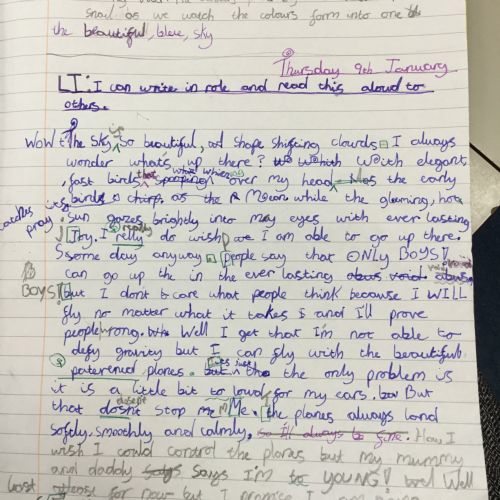 snail as we watch the colours form into one
the beautiful, blue, sky
Thursday 9th January
LI: I can write in role and read this aloud to
others.
WOW! the sky is so beautiful, and shape shifting clouds. I always
wonder whats up there? With elegant
fast birds that over my head. As the early
birds chirp, as the Moon while the gleaming, hot
catches its pray. Sun gazes brightly into my eyes with ever lasting
Joy. I relly do wish I am able to go up there.
Some day anyway. People say that ONLY BOYS!
can go up the in the ever lasting
BOYS! but I don't care what people think because I WILL
fly no matter what it takes and I'll prove
people wrong. Well I get that I'm not able to
defy gravity but I can fly with the beautiful
paterened planes. the only problem is
it is a little bit to loud for my ears. But
that dosn't stop ME. the planes always land
softly, smoothly and calmly, so I'll always be fine. How I
wish I could control the planes but my mummy
and daddy says I'M to YOUNG! Well
for now but I promise I